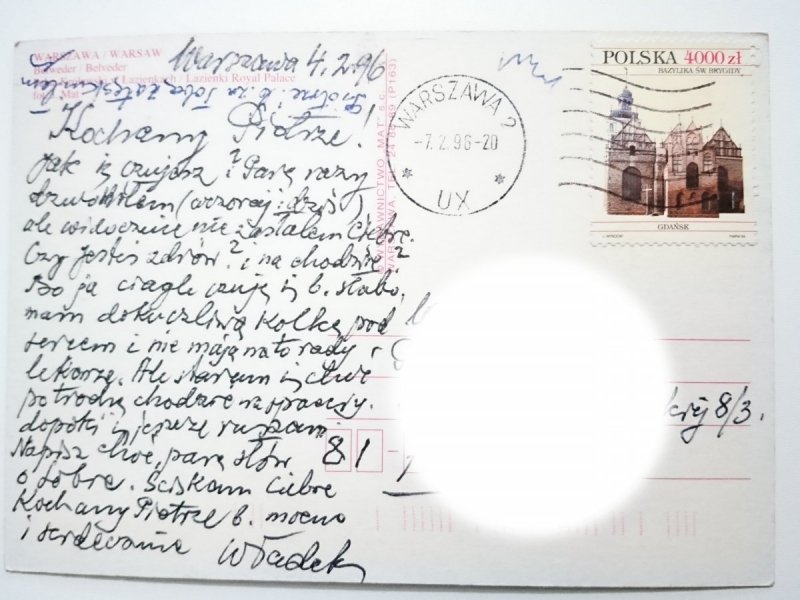 WARSZAWA / WARSAW
Belweder / Belveder
Łazienkach / Łazienki Royal Palace
Warszawa 4.2.96
Piotrze! b. za Tobą zatęskniłem
Kochany Piotrze!
Jak się czujesz? Parę razy
dzwoniłem (wczoraj i dziś)
ale widocznie nie zastałem Ciebie.
Czy jesteś zdrów? i na chodzie?
Bo ja ciągle czuję się b. słabo,
mam dokuczliwą kolkę pod
sercem i nie mają na to rady
lekarze. Ale staram się choć
po trochu chodzić na spacery.
dopóki się jeszcze ruszam.
Napisz choć parę słów
o sobie. Ściskam Ciebie
Kochany Piotrze b. mocno
i serdecznie Władek
WARSZAWA 2
-7.2.96-20
UX
POLSKA 4000 zł
BAZYLIKA ŚW. BRYGIDY
GDAŃSK
WYDAWNICTWO "MAT"
8/3.
81-